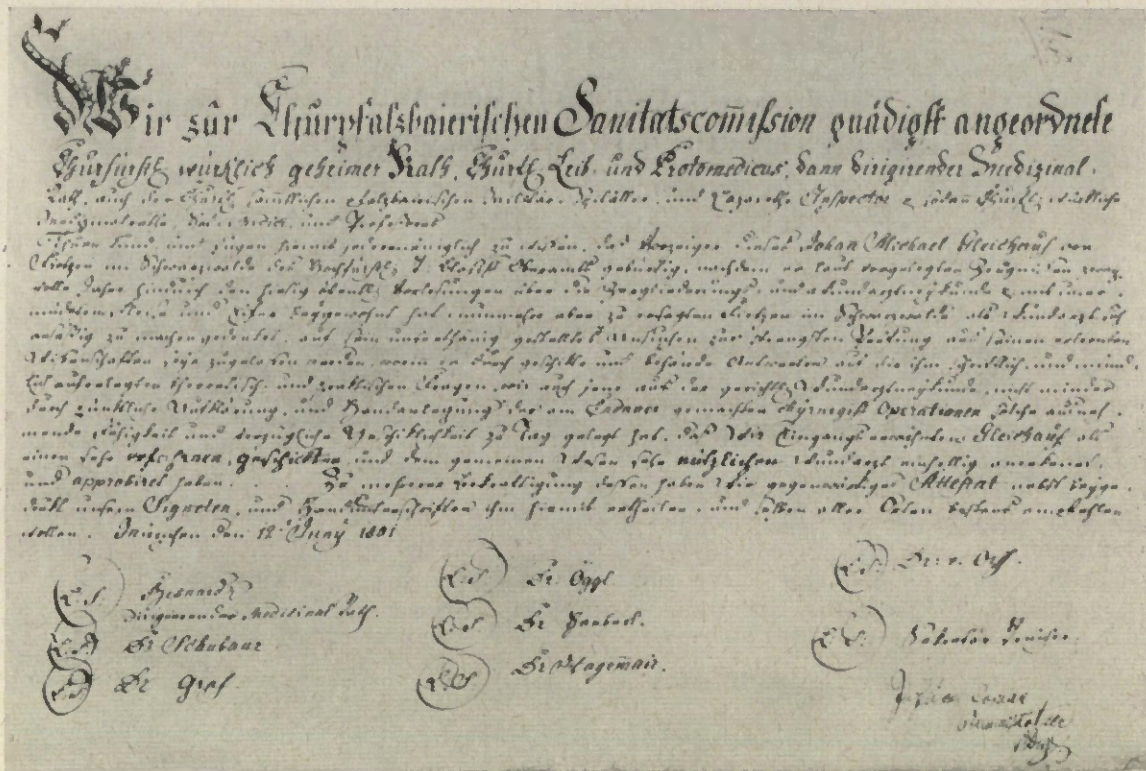 Wir zûr Churpfalzbaierischen Sanitätscom̅ission gnädigst angeordnete
Churfürstl. würklich geheimer Rath, Churfl. Leib- und Protomedicus, dann dirigirender Medizinal-
Rath, auch der Churfl. sämmtlichen pfalzbaierischen Militär-Spitäller, und Lazarethe Inspector & sodann Churfl. würkliche
Medizinalräthe, und Professores
Thuen kund, und fügen hiemit jedermäniglich zu wissen, das Vorzeiger dieses Johan Michael Gleichauf von
im Schwarzwalde des Oberamts gebürtig, nachdem er laut vorgelegten Zeugnissen zwey
volle Jahre hindurch den hiesig öffentl. Vorlesungen über die Zergliederungs- und Wundarzneykunde mit unver-
müdetem Fleise und Eifer beygewohnt hat, nunmehro aber zu im Schwarzwalde als Wundarzt sich
ansäßig zu machen gedenket, auf sein unterthänig gestelltes Ansuchen zur strengsten Prüfung aus seinen erlernten
Wissenschaften seye zugelassen worden, worin er durch geschikte und behende Antworten auf die ihm schriftlich und münd-
lich aufgelegten theoretisch- und praktischen Fragen, wie auch jene aus der gerichtl. Wundarzneykunde, nicht minder
durch pünktliche Aufklärung, und Handanlegung der am Cadaver gemachten Chyrurgisch Operationen solche ausneh-
mende Fähigkeit und vorzügliche Geschiklichkeit zu Tag gelegt hat, daß Wir Eingangs erwehnten Gleichauf als
einen sehr erfahrnen, geschickten, und dem gemeinen Wesen sehr nützlichen Wundarzt einhellig anerkennet,
und approbiret haben. Zu mehrerer Bekräftigung dessen haben Wir gegenwärtiges Attestat nebst beyge-
drukt unsern Signeten, und Handunterschriften ihm hiemit ertheilen, und selben aller Orten bestens empfehlen
wollen. München den 12 Juny 1801
L.S. Besnard
dirigierender Medicinal Rath.
L.S. Dr Schubaur
L.S. Dr Graf
L.S. Dr Oggl.
L.S. Dr
L.S. Dr Wagemair.
L.S. Dr:
L.S. Sekretär